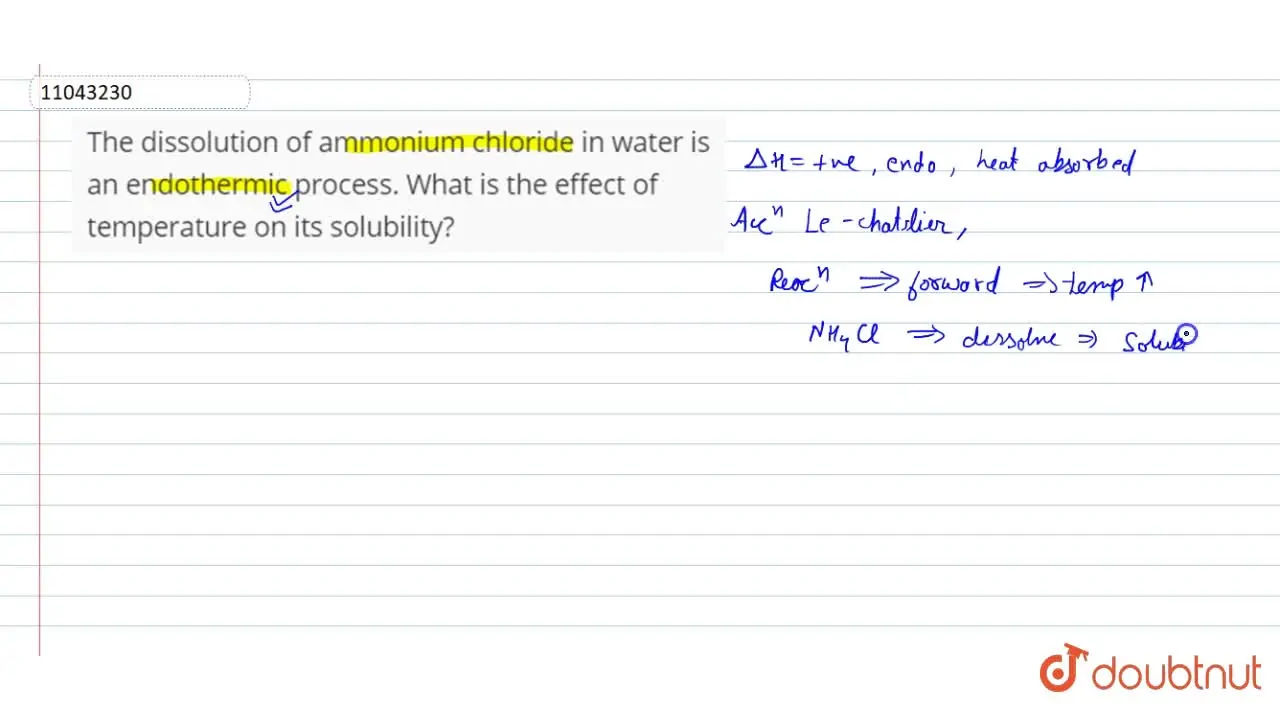 11043230
The dissolution of ammonium chloride in water is
an endothermic process. What is the effect of
temperature on its solubility?
ΔH = +ve , endo , heat absorbed
Accⁿ Le-chatelier,
Reacⁿ ⇒ forward ⇒ temp ↑
NH₄Cl ⇒ dissolve ⇒ Solub
doubtnut